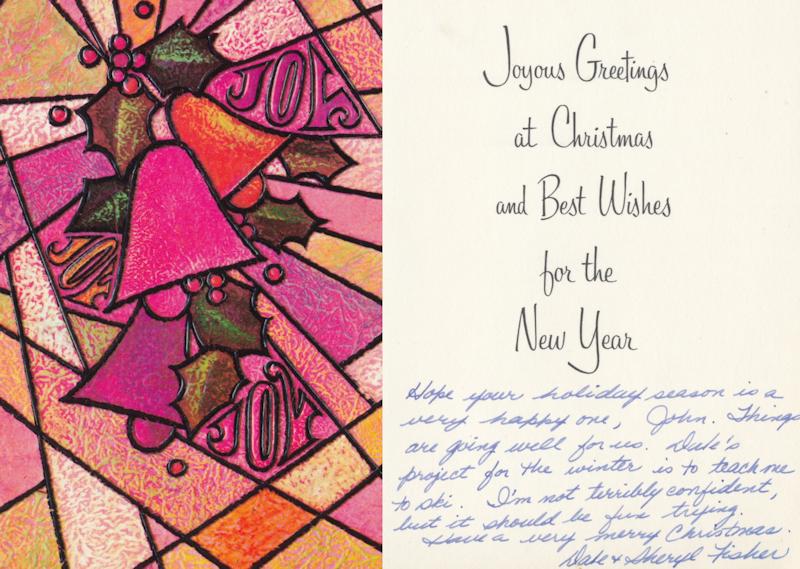 JOY
JOY
JOY
Joyous Greetings
at Christmas
and Best Wishes
for the
New Year
Hope your holiday season is a
very happy one, John. Things
are going well for us. Dale's
project for the winter is to teach me
to ski. I'm not terribly confident,
but it should be fun trying.
Have a very merry Christmas.
Dale & Sheryl Fisher